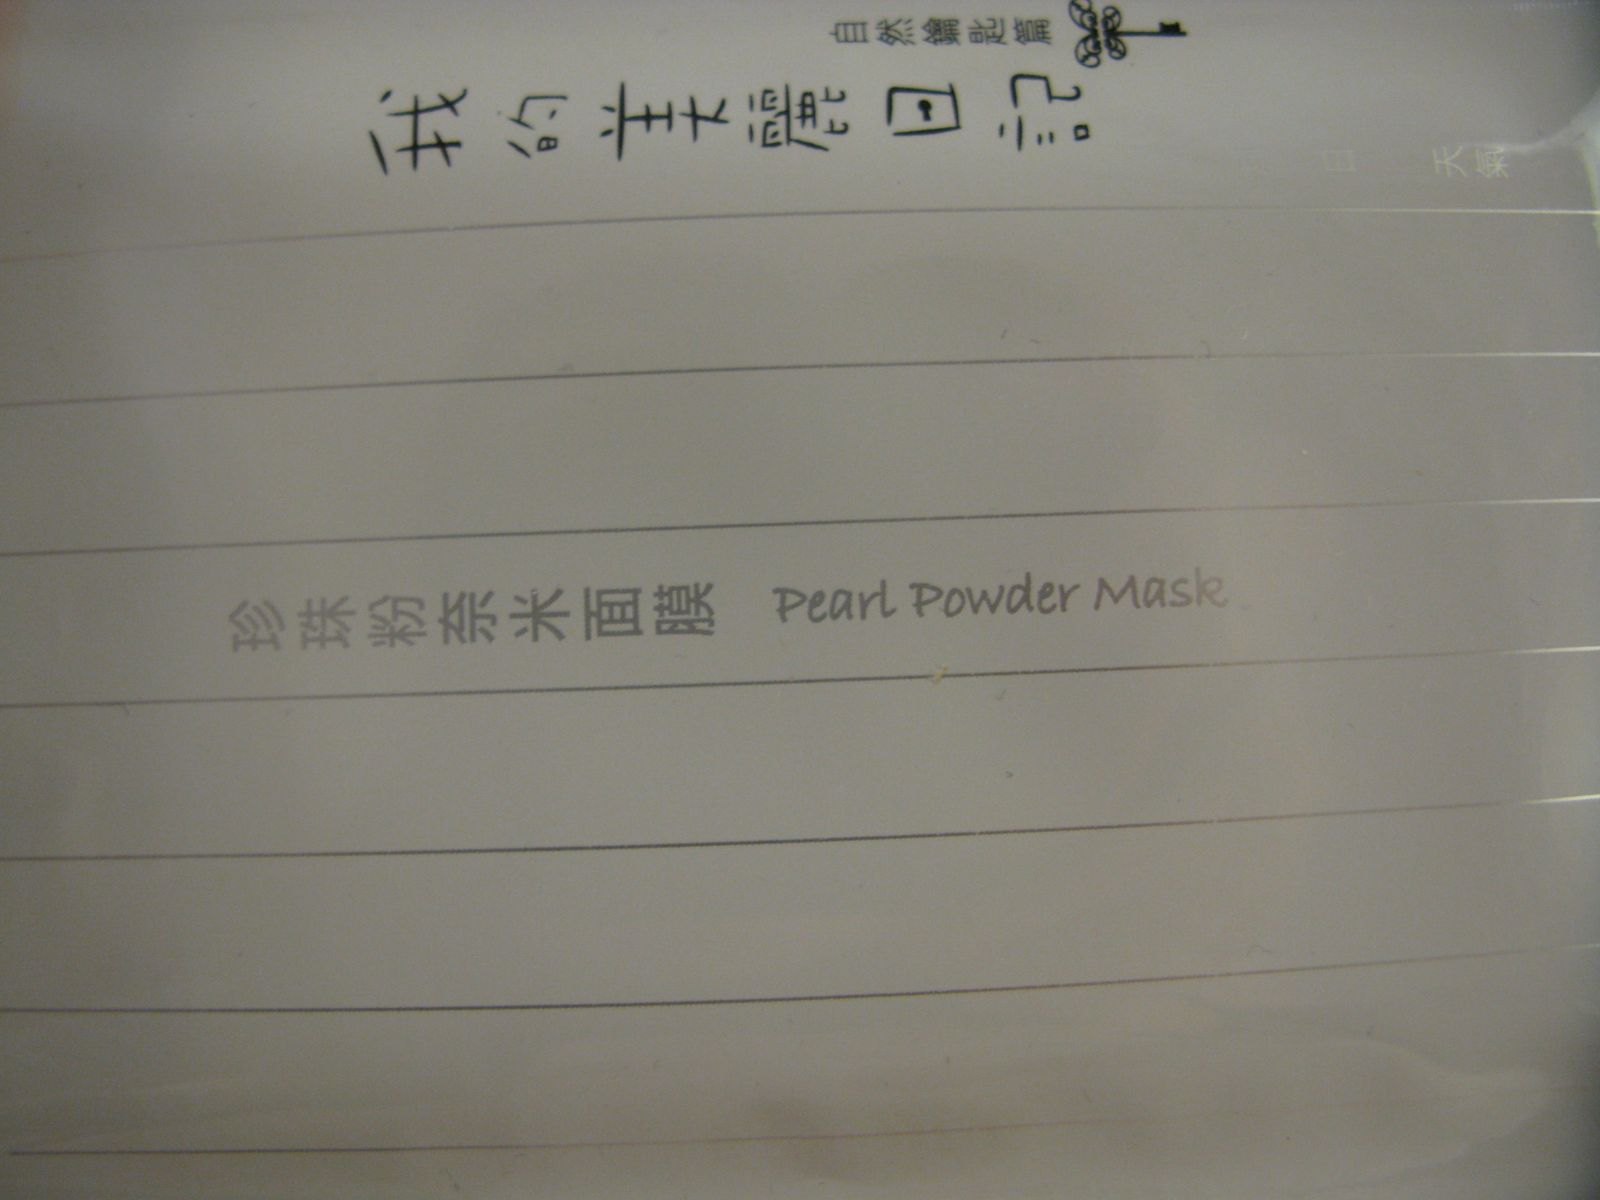 自然鑰匙篇
我的美麗日記
日 天氣
珍珠粉奈米面膜 Pearl Powder Mask